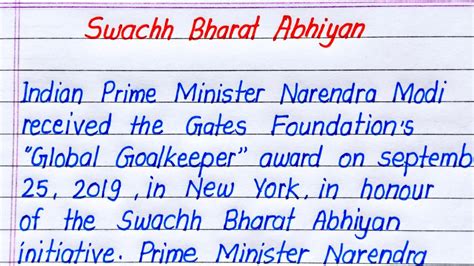 Swachh Bharat Abhiyan
Indian Prime Minister Narendra Modi
received the Gates Foundation's
"Global Goalkeeper" award on septemb
25, 2019, in New York, in honour
of the Swachh Bharat Abhiyan
initiative. Prime Minister Narendra